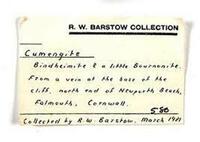 R. W. BARSTOW COLLECTION
Cumengite
Bindheimite & a little Bournonite.
From a vein at the base of the
cliff, north end of Newporth Beach,
Falmouth, Cornwall.
580
Collected by R.W. Barstow, March 1981